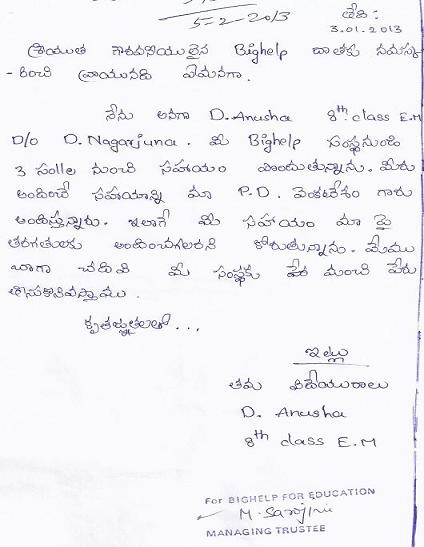 5-2-2013
తేది:
3.01.2013
శ్రీయుత గౌరవనీయులైన Bighelp దాతకు నమస్క
-రించి వ్రాయునది ఏమనగా.
నేను అనగా D.Anusha 8th class E.M
D/o D.Nagarjuna. మీ Bighelp సంస్థనుండి
3 సంలల నుంచి సహాయం పొందుతున్నాను. మీరు
అందించే సహాయాన్ని మా P.D. వెంకటేశం గారు
అందిస్తున్నారు. ఇలాగే మీ సహాయం మా పై
తరగతులకు అందించగలరని కోరుతున్నాను. మేము
బాగా చదివి మీ సంస్థకు పేరు మంచి పేరు
తీసుకొనివస్తాము.
కృతజ్ఞతలతో...
ఇట్లు
తమ విధేయురాలు
D. Anusha
8th class E.M
For BIGHELP FOR EDUCATION
M. Sarojini
MANAGING TRUSTEE